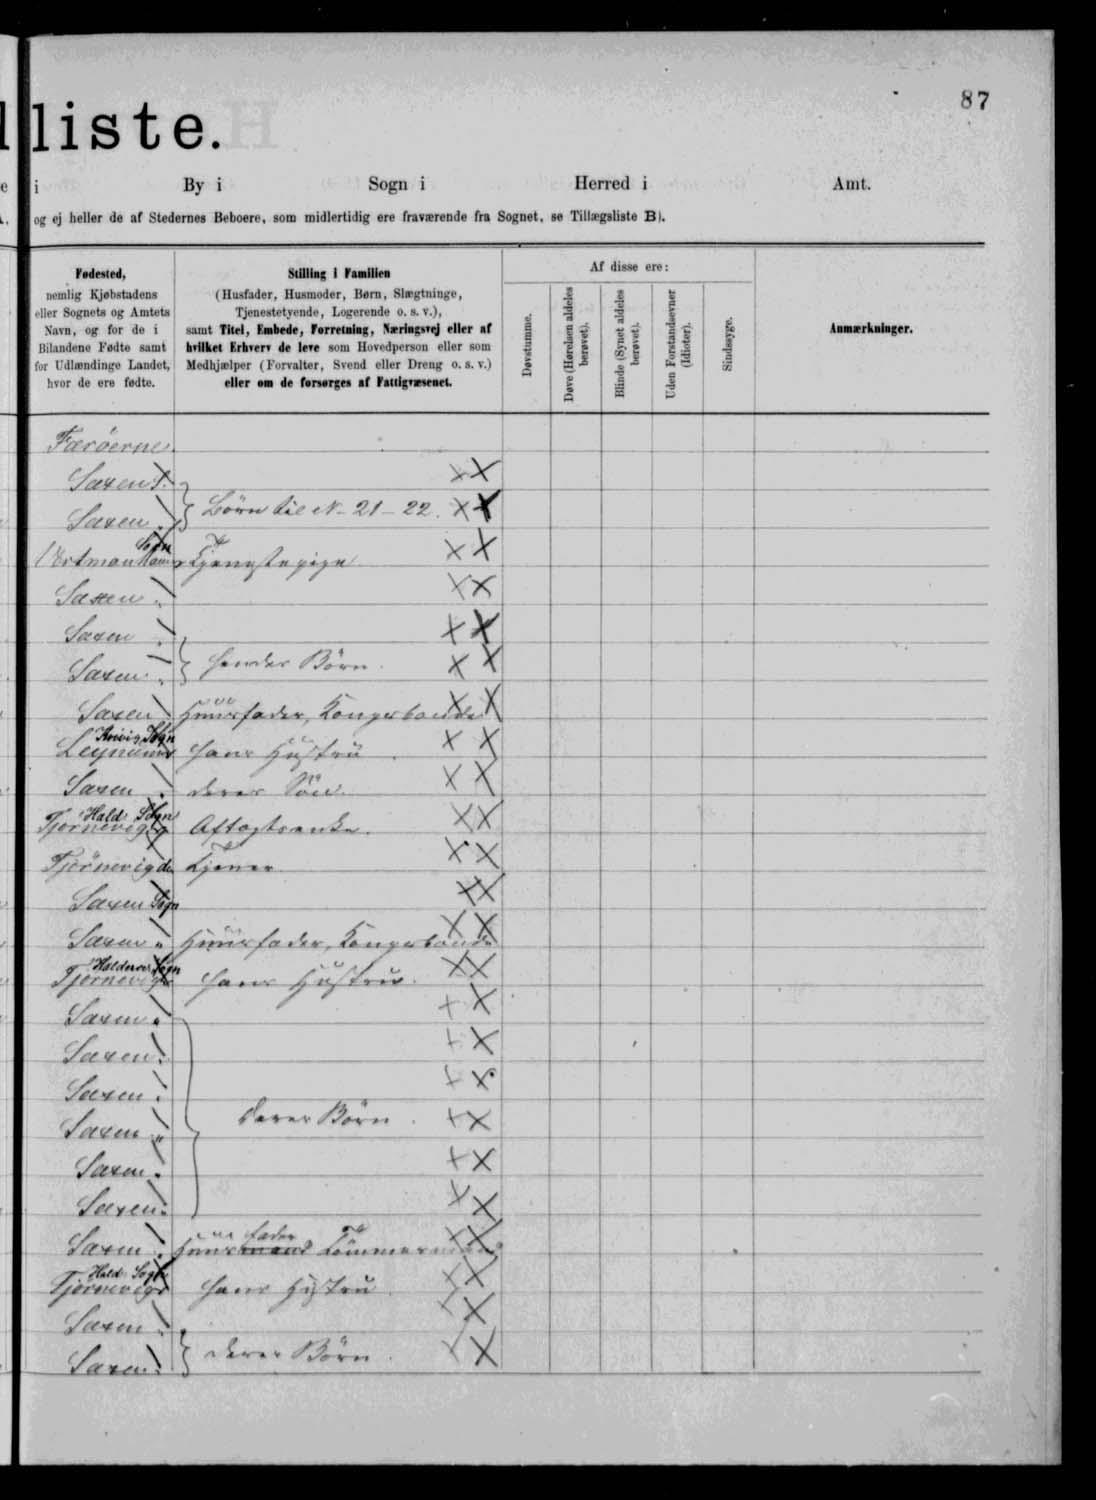 87
lliste.
e i By i Sogn i Herred i Amt.
og ej heller de af Stedernes Beboere, som midlertidig ere fraværende fra Sognet, se Tillægsliste B).
Fødested,
nemlig Kjøbstadens
eller Sognets og Amtets
Navn, og for de i
Bilandene Fødte samt
for Udlændinge Landet,
hvor de ere fødte.
Stilling i Familien
(Husfader, Husmoder, Børn, Slægtninge,
Tjenestetyende, Logerende o. s. v.),
samt Titel, Embede, Forretning, Næringsvej eller af
hvilket Erhverv de leve som Hovedperson eller som
Medhjælper (Forvalter, Svend eller Dreng o. s. v.)
eller om de forsørges af Fattigvæsenet.
Af disse ere:
Døvstumme.
Døve (Hørelsen aldeles
berøvet).
Blinde (Synet aldeles
berøvet).
Uden Forstandsevner
(Idioter).
Sindssyge.
Anmærkninger.
Færöerne
Saxen S. × ×
Saxen Börn til N- 21-22. × ×
Sogn
Vestmanhavn Tjenestepige × ×
Saxen × ×
Saxen × ×
Saxen hendes Börn. × ×
Saxen Huusfader, Kongsbonde × ×
Kvivig Sogn
Leynum hans Hustru × ×
Saxen deres Sön × ×
Hald. Sogn
Tjörnevig Aftægtsenke. × ×
Tjörnevig do Tjener × ×
Saxen Sogn × ×
Saxen " Huusfader, Kongsbonde × ×
Haldersv Sogn
Tjörnevig hans Hustru. × ×
Saxen " × ×
Saxen " × ×
Saxen " × ×
Saxen " deres Börn. × ×
Saxen " × ×
Saxen " × ×
fader
Saxen " Huusmand Tömmermand × ×
Hald. Sogn
Tjörnevig hans Hustru × ×
Saxen " × ×
Saxen " deres Börn. × ×